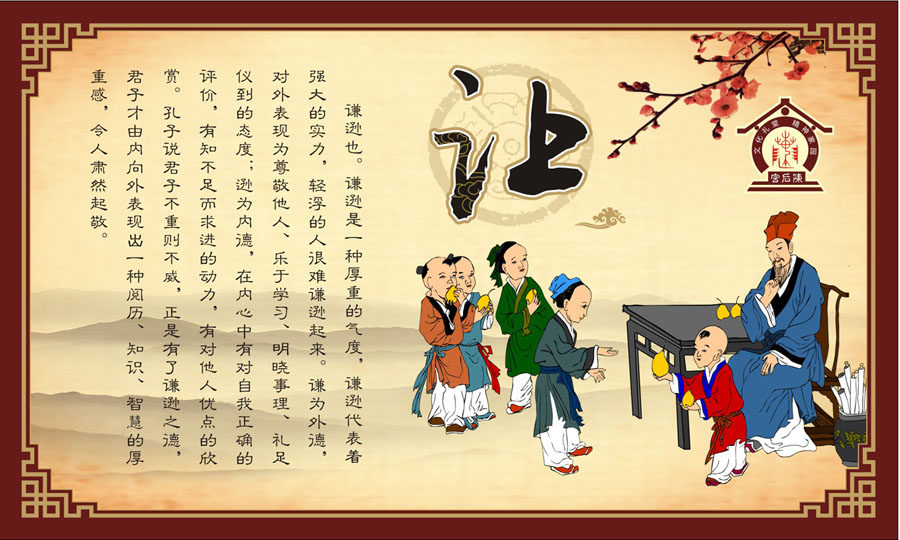 让
谦逊也。谦逊是一种厚重的气度，谦逊代表着
强大的实力，轻浮的人很难谦逊起来。谦为外德，
对外表现为尊敬他人、乐于学习、明晓事理、礼足
仪到的态度；逊为内德，在内心中有对自我正确的
评价，有知不足而求进的动力，有对他人优点的欣
赏。孔子说君子不重则不威，正是有了谦逊之德，
君子才由内向外表现出一种阅历、知识、智慧的厚
重感，令人肃然起敬。
文化礼堂 精神家园
宫后陳